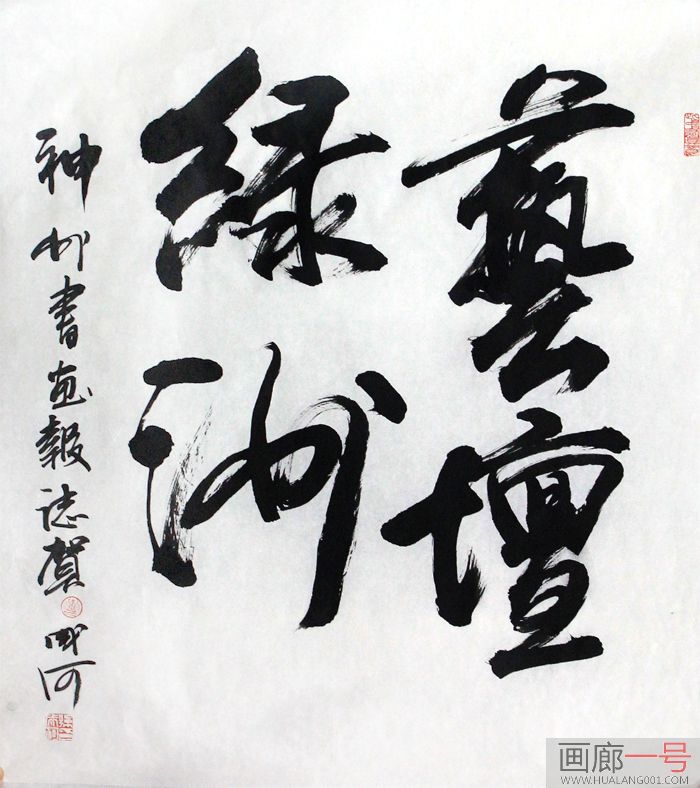 藝壇
綠洲
神州書画報誌賀
画廊一号
WWW.HUALANG001.COM